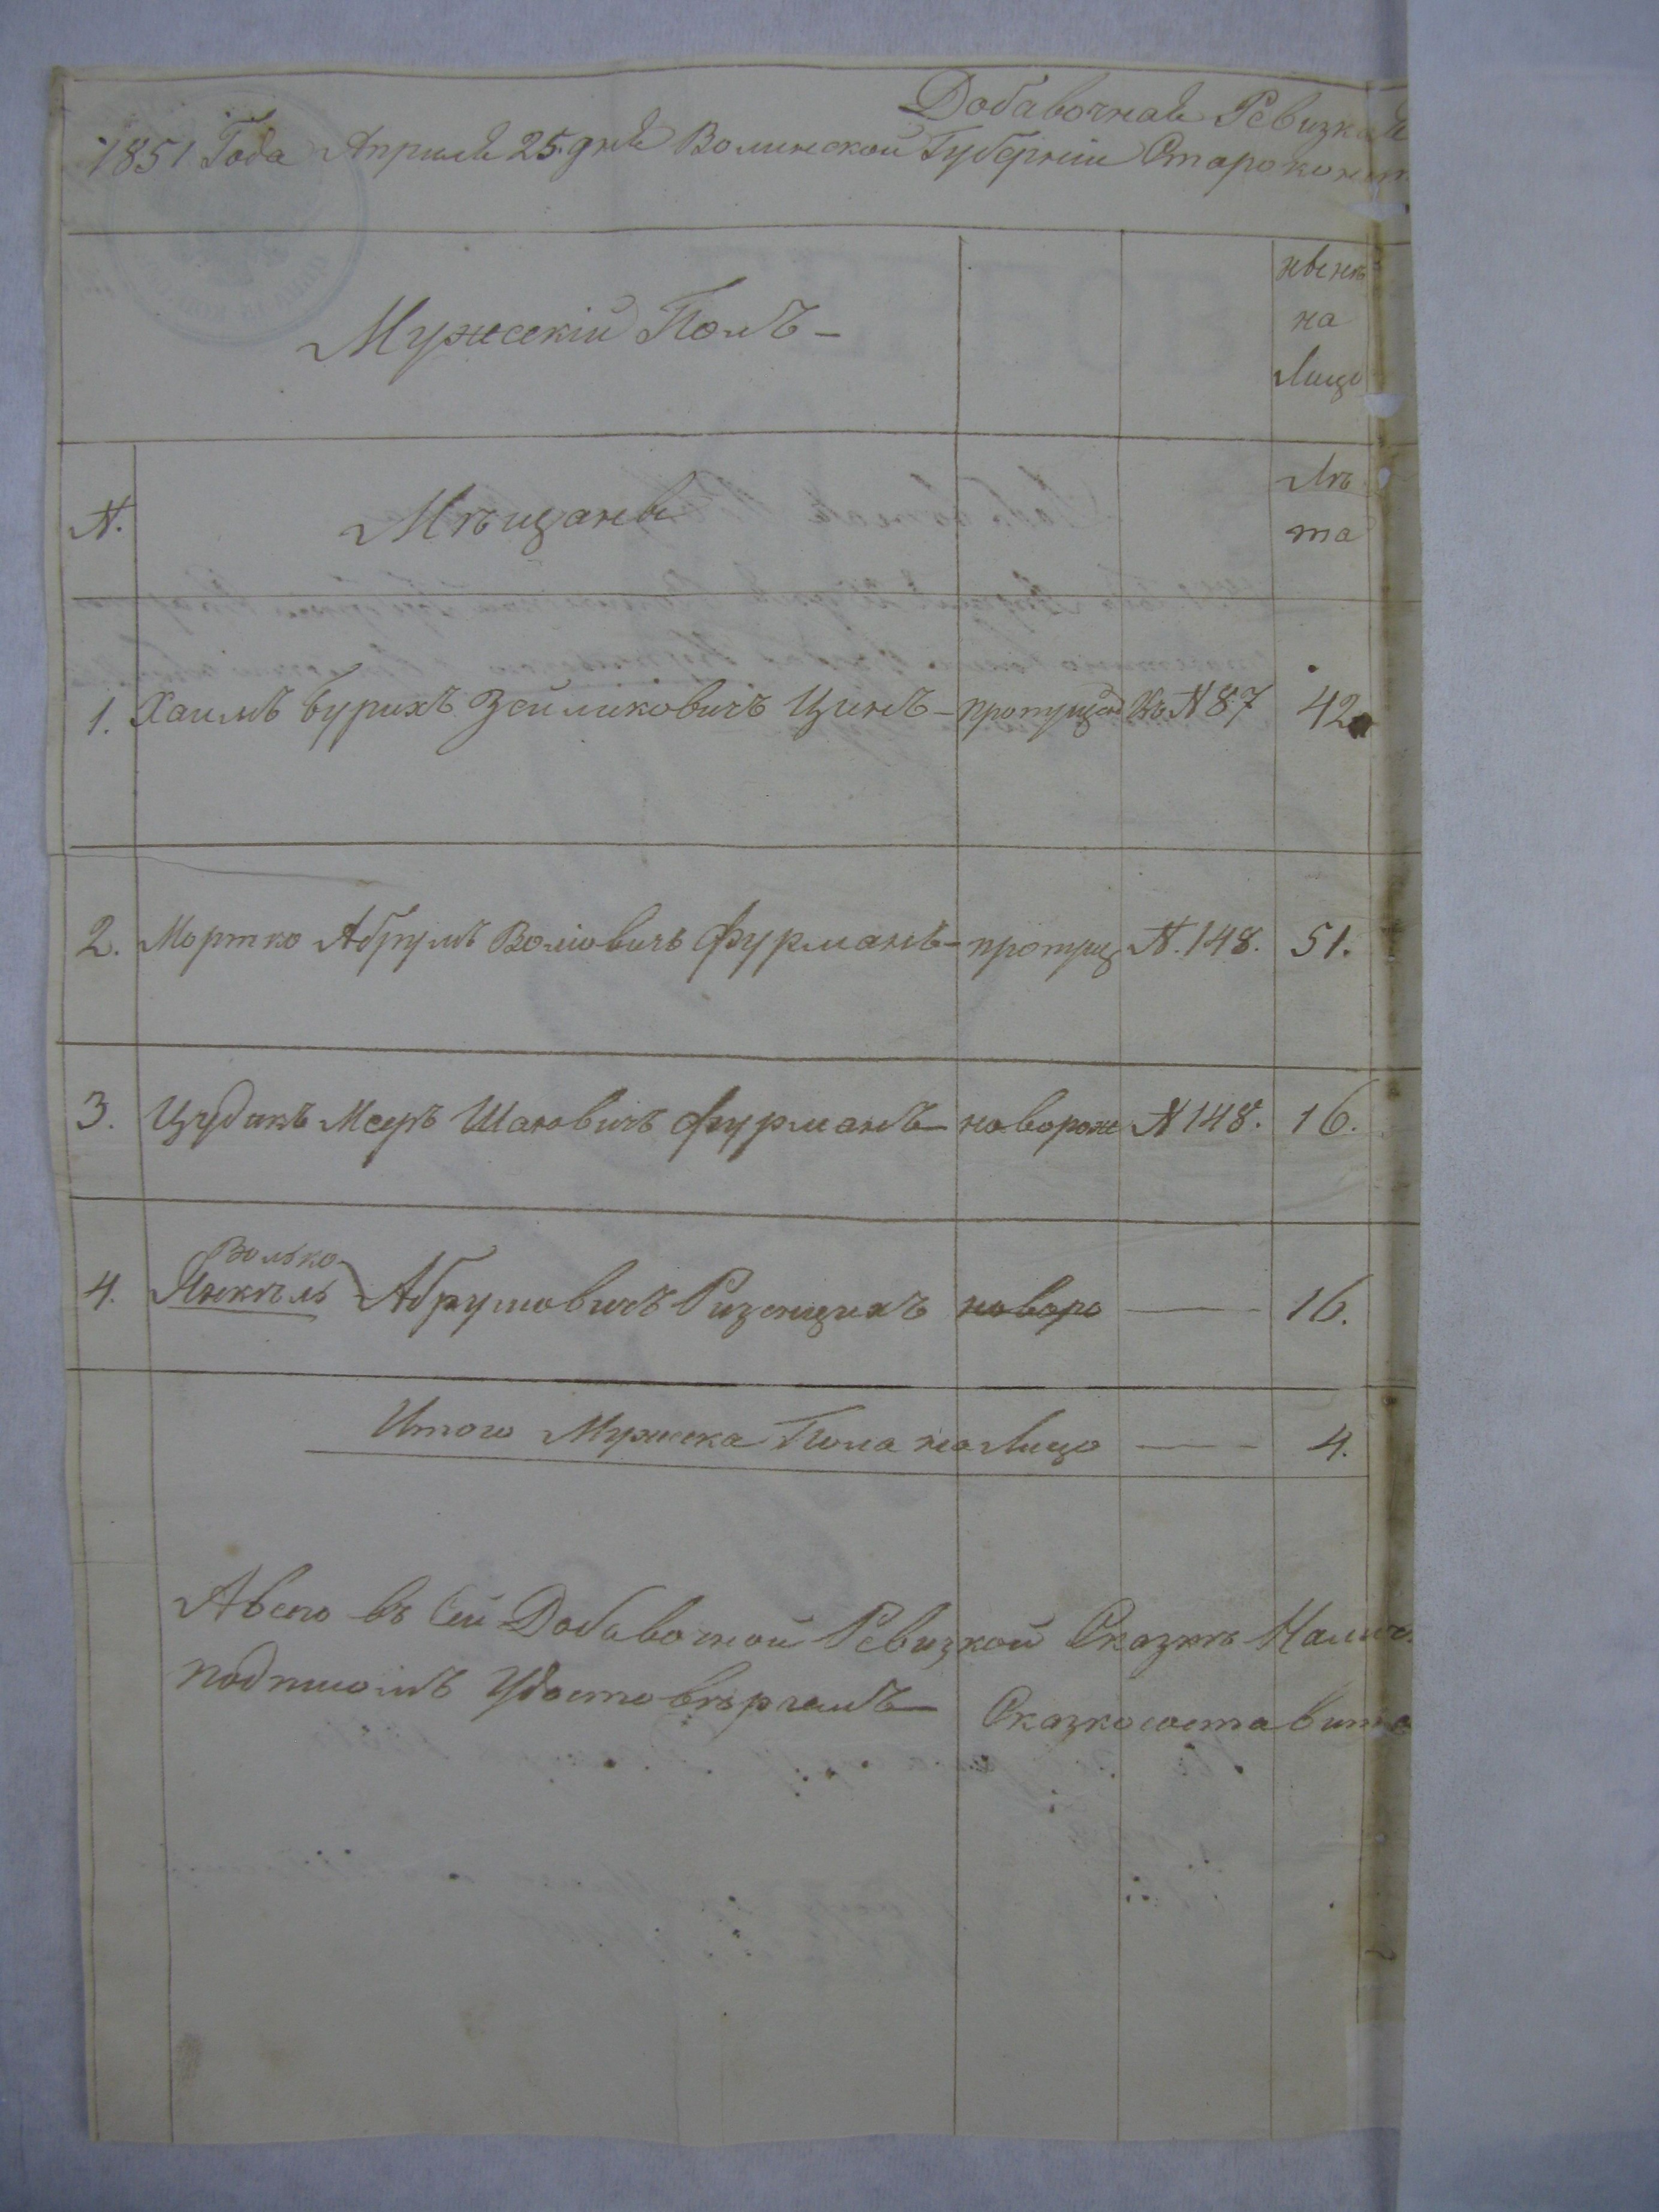 Добавочная Ревизкая
1851 Года Апреля 25 дня Волинской Губерніи Староконст
Мужескій Полъ –
нынѣ
на
Лицо
N.
Мѣщане
Лѣ
та
1. Хаимъ Бурихъ Зейликовичъ Цинъ – пропущен къ N 87 42
2. Мортко Абрумъ Волковичъ Фурманъ – пропущ N. 148. 51.
3. Цудикъ Мееръ Шаевичъ Фурманъ – новорож N 148. 16.
Волько
4. Янкель Абрумовичъ новоро — 16.
Итого Мужска Пола на Лицо — 4.
А всего въ сей Добавочной Ревизкой Сказкѣ Налич
подписомъ Удостовѣряемъ – Сказкосостави